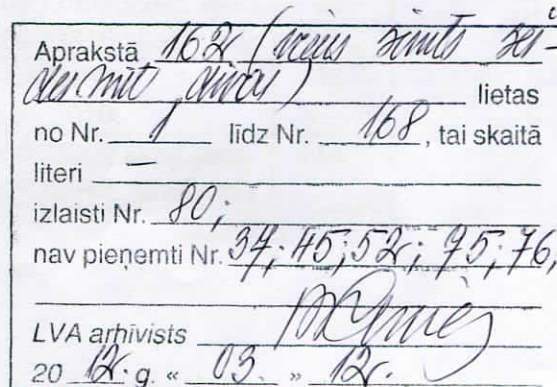 Aprakstā 162 (viens simts ses-
desmit divas) lietas
no Nr. 1 līdz Nr. 168, tai skaitā
literi —
izlaisti Nr. 80;
nav pieņemti Nr. 37; 45; 52; 75; 76,
LVA arhīvists
20 12. g. « 03. » 12.